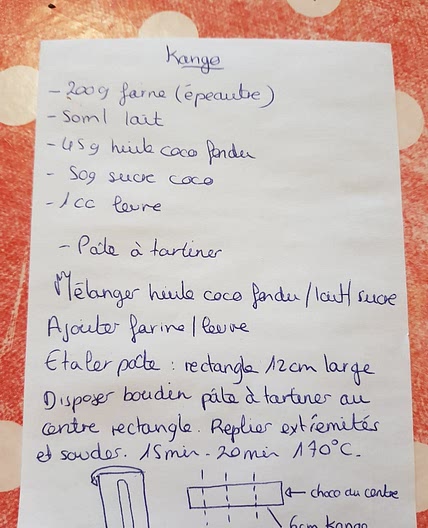 Kango
- 200g farine (épeautre)
- 50ml lait
- 45g huile coco fondu
- 50g sucre coco
- 1cc levure
- Pâte à tartiner
Mélanger huile coco fondu/lait/sucre
Ajouter farine/levure
Etaler pate : rectangle 12cm large
Disposer boudin pâte à tartiner au
centre rectangle. Replier extrêmités
et souder. 15min - 20min 170°C.
choco au centre
6cm Kango